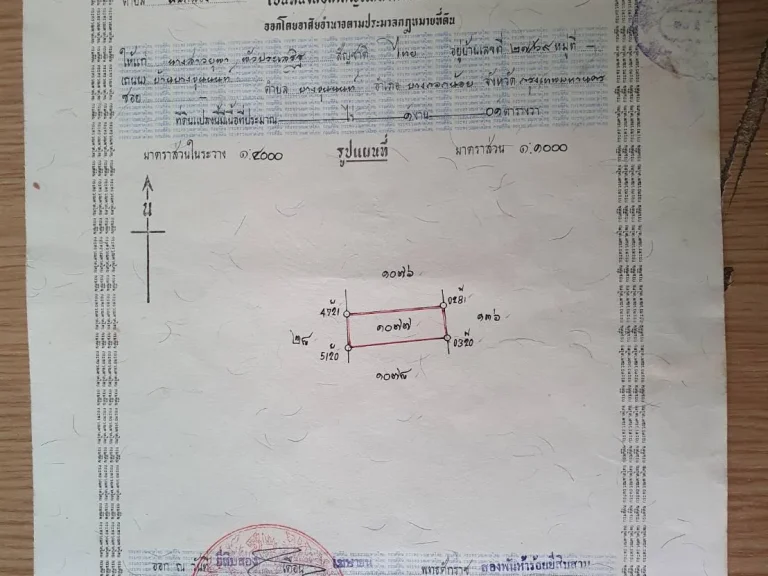 ออกโดยอาศัยอำนาจตามประมวลกฎหมายที่ดิน
ให้แก่ นางสาว สัญชาติ ไทย อยู่บ้านเลขที่ หมู่ที่ -
(ถนน) บ้านบางขุนนนท์
ซอย - ตำบล บางขุนนนท์ อำเภอ บางกอกน้อย จังหวัด กรุงเทพมหานคร
ที่ดินแปลงนี้มีเนื้อที่ประมาณ - ไร่ ๑ งาน ๐๑ ตารางวา
มาตราส่วนในระวาง ๑:๔๐๐๐ รูปแผนที่ มาตราส่วน ๑:๑๐๐๐
น
๑๐๗๖
๑๐๗๗
๑๓๖
๒๘
๑๐๗๘
ออก ณ วันที่ ยี่สิบสอง เดือน เมษายน พุทธศักราช สองพันห้าร้อยยี่สิบสาม